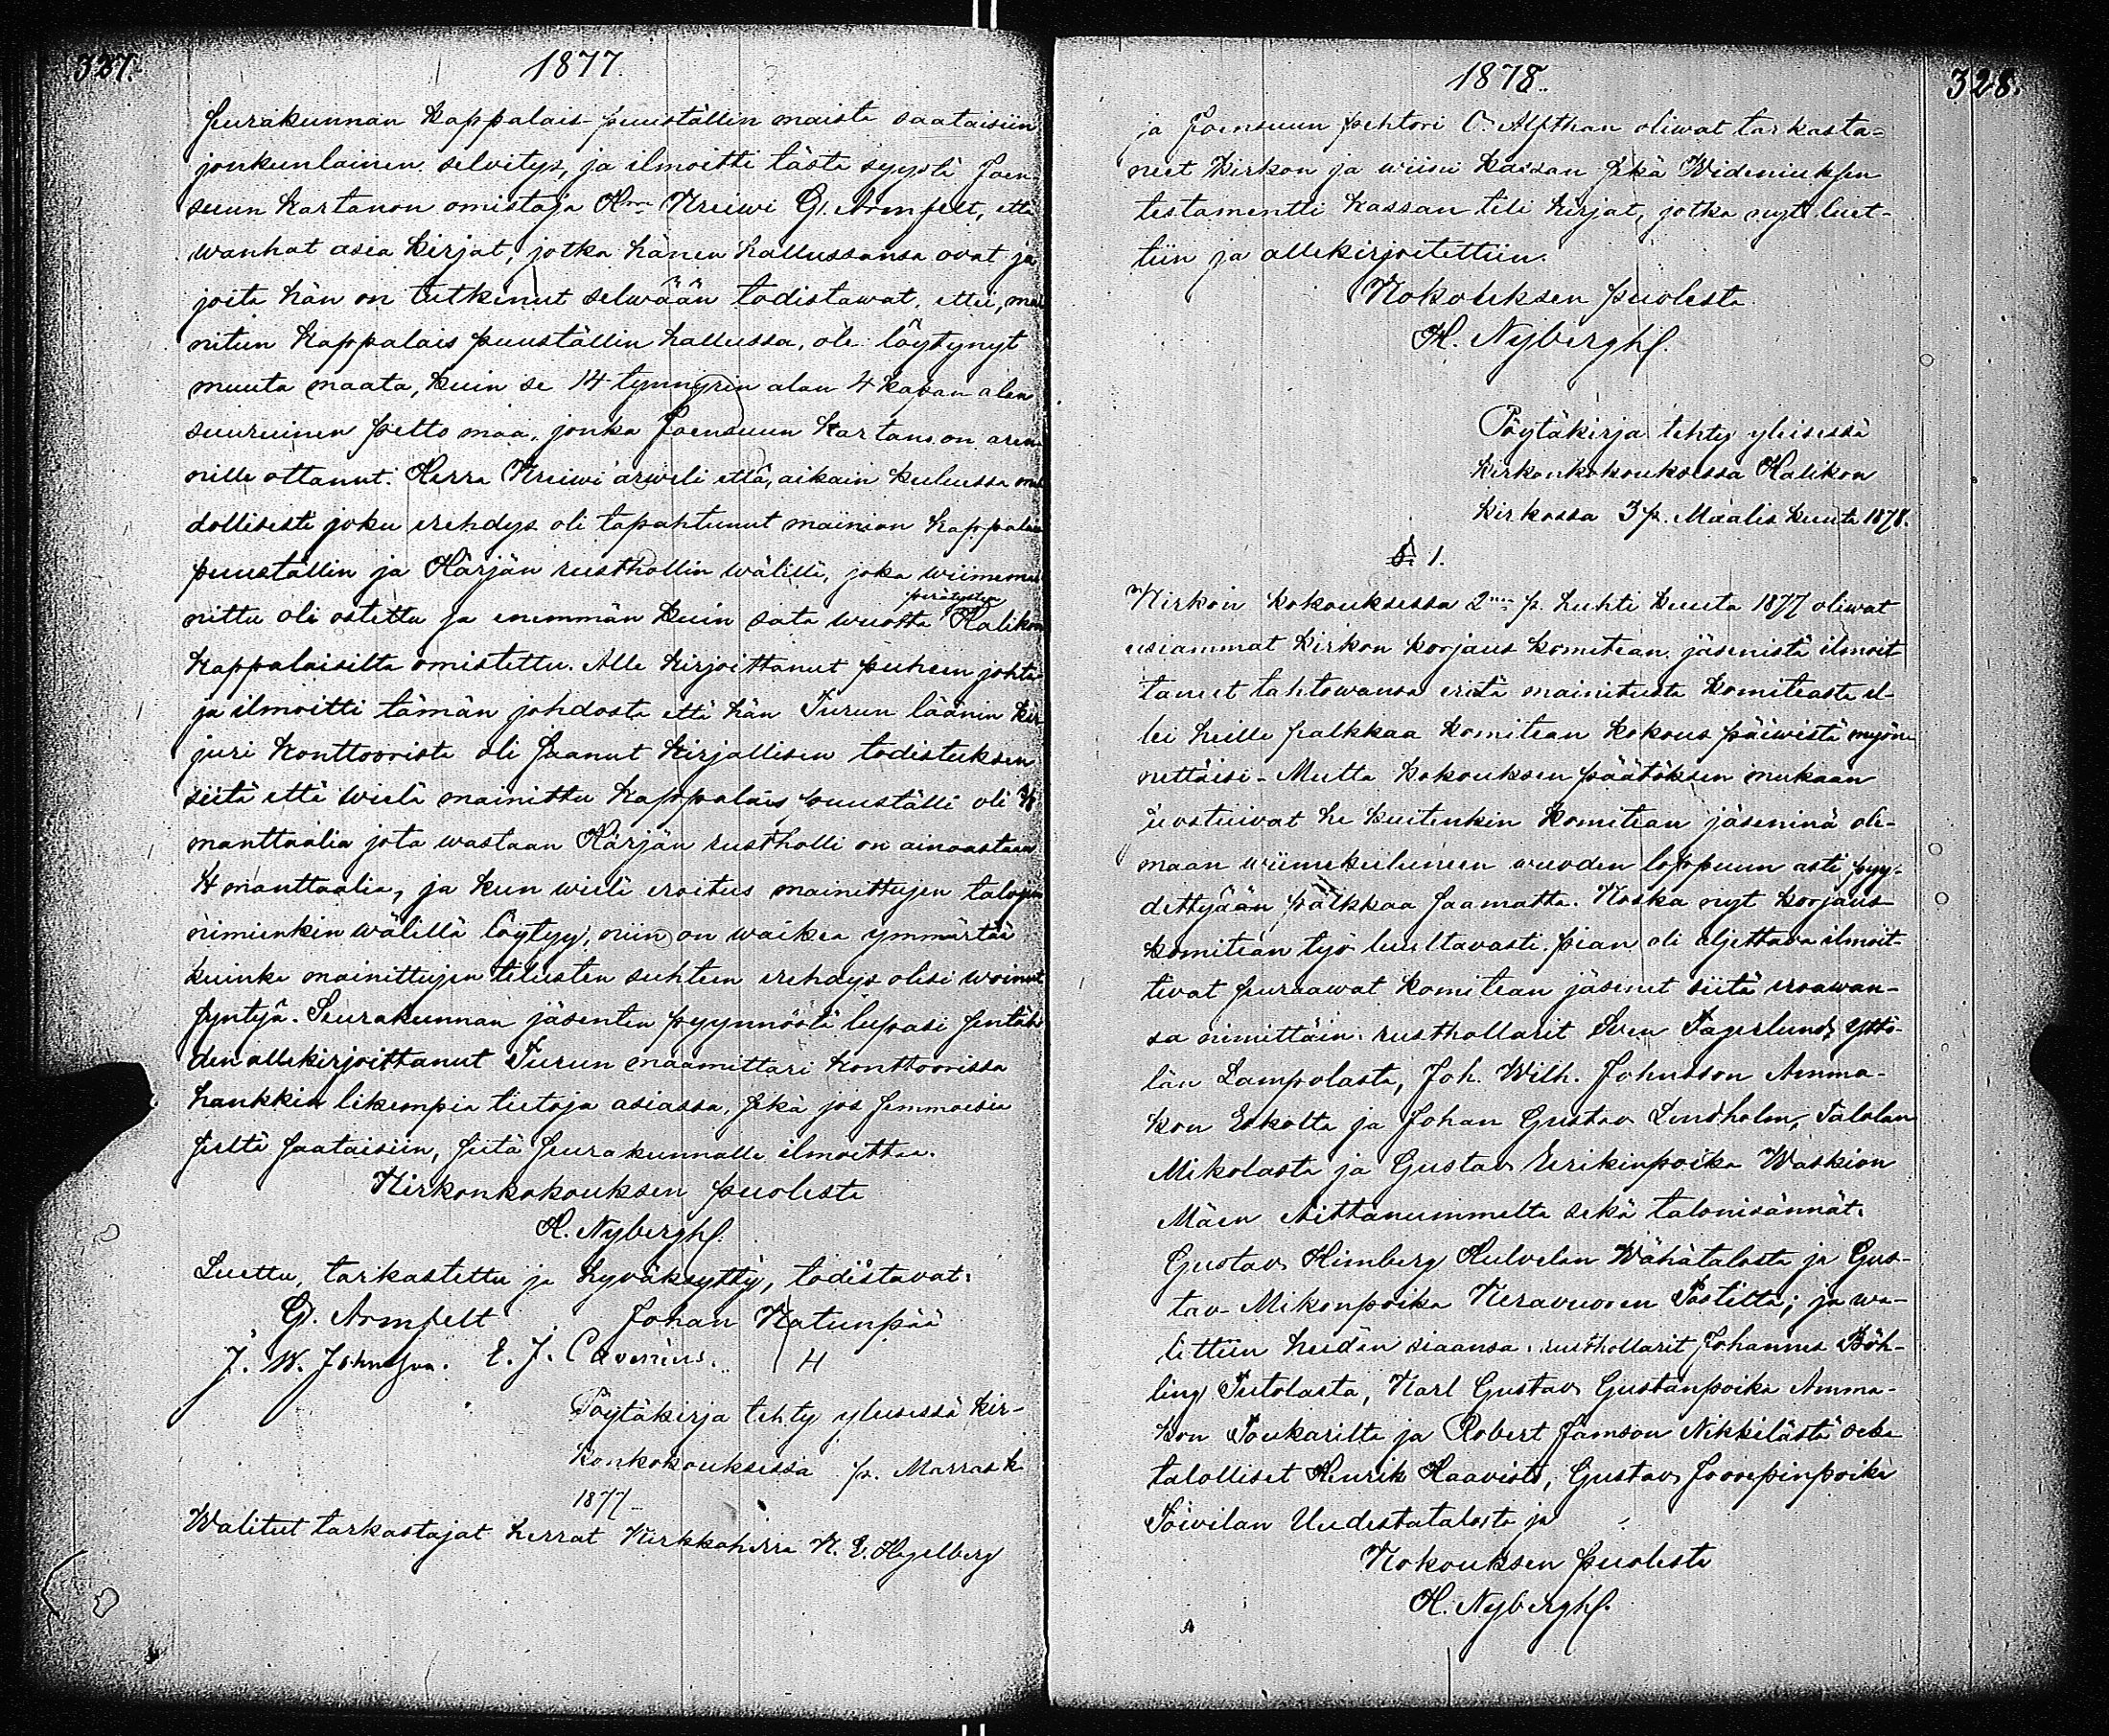 327.
1877.
seurakunnan Kappalais-puuställin maista saataisiin
jonkunlainen selvitys, ja ilmoitti tästä syystä Joen-
suun Kartanon omistaja Hrra Kreiwi G. Armfelt, että
wanhat asia Kirjat, jotka hänen hallussansa ovat ja
joita hän on tutkinut selwään todistawat, ettei, mai
nitun Kappalais puuställin hallussa, ole löytynyt
muuta maata, kuin se 14 tynnyrin alan 4 kapan alan
suuruinen pelto maa, jonka Joensuun Kartano on aren
nille ottanut. Herra Kreiwi arweli että, aikain kuluessa mah
dollisesti joku erehdys oli tapahtunut mainion Kappalais
puuställin ja Härjän rusthollin wälillä, joka wiimemai
nittu oli ostettu ja enemmän kuin sata wuotta perätysten Halikon
Kappalaisilta omistettu. Alle kirjoittanut puheen johta
ja ilmoitti tämän johdosta että hän Turun läänin kir
juri Konttoorista oli saanut kirjallisen todistuksen
siitä että wielä mainittu Kappalais puuställi oli
manttaalia jota wastaan Härjän rustholli on ainoastaan
manttaalia, ja kun wielä eroitus mainittujen talojen
nimienkin wälillä löytyy, niin on waikea ymmärtää
kuinka mainittujen tilusten suhteen erehdys olisi woinut
syntyä. Seurakunnan jäsenten pyynnöstä lupasi sentäh
den allekirjoittanut Turun maamittari Konttoorissa
hankkia likempia tietoja asiassa, sekä jos semmoisia
sieltä saataisiin, siitä seurakunnalle ilmoittaa.
Kirkonkokouksen puolesta
H. Nybergh.
Luettu, tarkastettu ja hyväksytty, todistavat:
G. Armfelt Johan Katunpää
J. W. Johnsson. E. J. Cavenius. H
Pöytäkirja tehty yleisessä kir-
konkokouksessa p. Marrask.
1877
Walitut tarkastajat herrat Kirkkoherra K. E. Hagelberg
328.
1878.
ja Joensuun pehtori C. Alfthan oliwat tarkasta-
neet Kirkon ja wiini kassan sekä Wideniuksen
testamentti kassan tili kirjat, jotka nyt luet-
tiin ja allekirjoitettiin.
Kokouksen puolesta
H. Nybergh.
Pöytäkirja tehty yleisessä
kirkonkokouksessa Halikon
kirkossa 3 p. Maalis kuuta 1878.
§ 1.
Kirkon kokouksessa 2 p. huhti kuuta 1877 oliwat
usiammat Kirkon korjaus komitean jäsenistä ilmoit
taneet tahtowansa erita mainitusta Komiteasta el-
lei heille palkkaa komitean kokous päiwistä myön-
nettäisi. Mutta kokouksen päätöksen mukaan
suostuivat he kuitenkin Komitean jäseninä ole-
maan wiimekuluneen wuoden loppuun asti pyy-
dettyään palkkaa saamatta. Koska nyt korjaus
komitean työ luultavasti pian oli aljettava ilmoit-
tivat seuraawat komitean jäsenet siitä eroawan-
sa nimittäin: rusthollarit Sven Fagerlund Ytto-
län Lampolasta, Joh. Wilh. Johnsson Amma-
kon Eskolta ja Johan Gustav Lindholm, Talolan
Mikolasta ja Gustav Eerikinpoika Waskion
Mäen Aittanummelta sekä talonisännät:
Gustav Himberg Kulvelan Wähätalosta ja Gus-
tav Mikonpoika Keravuoren Pastilta; ja wa-
littiin heidän siaansa: rusthollarit Johannes Böh-
ling Tutolasta, Karl Gustav Gustanpoika Amma-
kon Toukarilta ja Robert Jamson Nikkilästä seka
talolliset Henrik Haavisto, Gustav Joosepinpoika
Toivilan Uudestatalosta ja
Kokouksen puolesta
H. Nybergh.